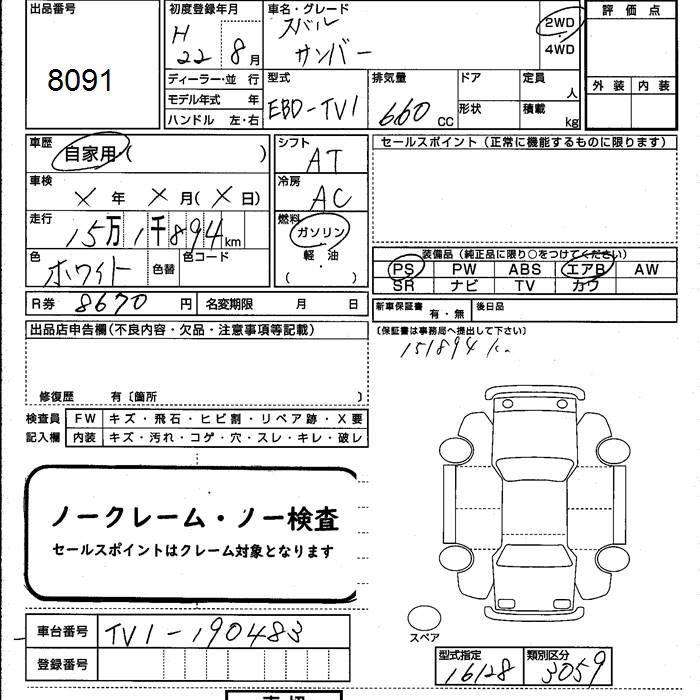 出品番号
8091
初度登録年月
H 22 8月
車名・グレード
スバル
サンバー
2WD
・
4WD
評価点
外装 内装
ディーラー・並 行
モデル年式 年
ハンドル 左・右
型式
EBD-TV1
排気量
660 cc
ドア
形状
定員
人
積載
kg
車歴
自家用( )
車検
× 年 × 月( × 日)
走行
15万1千894km
色
ホワイト
色替
色コード
シフト
AT
冷房
AC
燃料
ガソリン
軽・油
( )
セールスポイント(正常に機能するものに限ります)
装備品(純正品に限り○をつけてください)
PS PW ABS エアB AW
SR ナビ TV カワ
R券 8670 円 名変期限 月 日
新車保証書 有・無 後日品
〔保証書は事務局へ提出して下さい〕
151894
出品店申告欄(不良内容・欠品・注意事項等記載)
修復歴 有〔箇所 〕
検査員
記入欄
FW キズ・飛石・ヒビ割・リペア跡・X要
内装 キズ・汚れ・コゲ・穴・スレ・キレ・破レ
ノークレーム・ノー検査
セールスポイントはクレーム対象となります
スペア
車台番号 TV1-190483
登録番号
型式指定
16128
類別区分
3059